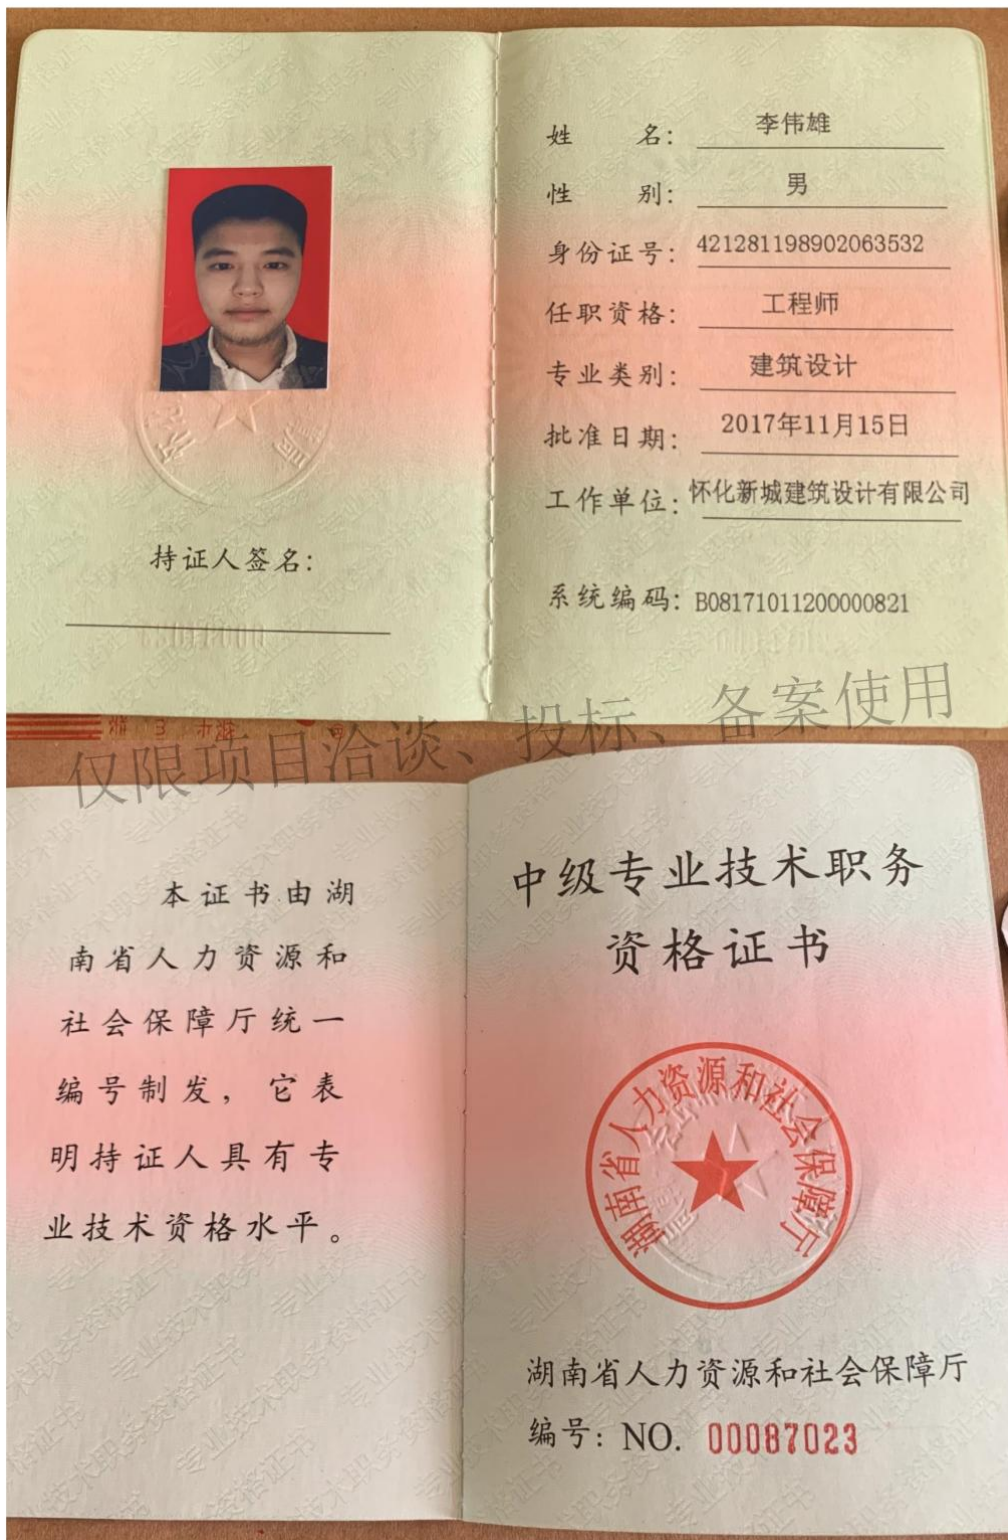 姓 名: 李伟雄
性 别: 男
身份证号: 421281198902063532
任职资格: 工程师
专业类别: 建筑设计
批准日期: 2017年11月15日
工作单位: 怀化新城建筑设计有限公司
系统编码: B08171011200000821
持证人签名:
仅限项目洽谈、投标、备案使用
本证书由湖
南省人力资源和
社会保障厅统一
编号制发，它表
明持证人具有专
业技术资格水平。
中级专业技术职务
资格证书
湖南省人力资源和社会保障厅
湖南省人力资源和社会保障厅
编号: NO. 00087023